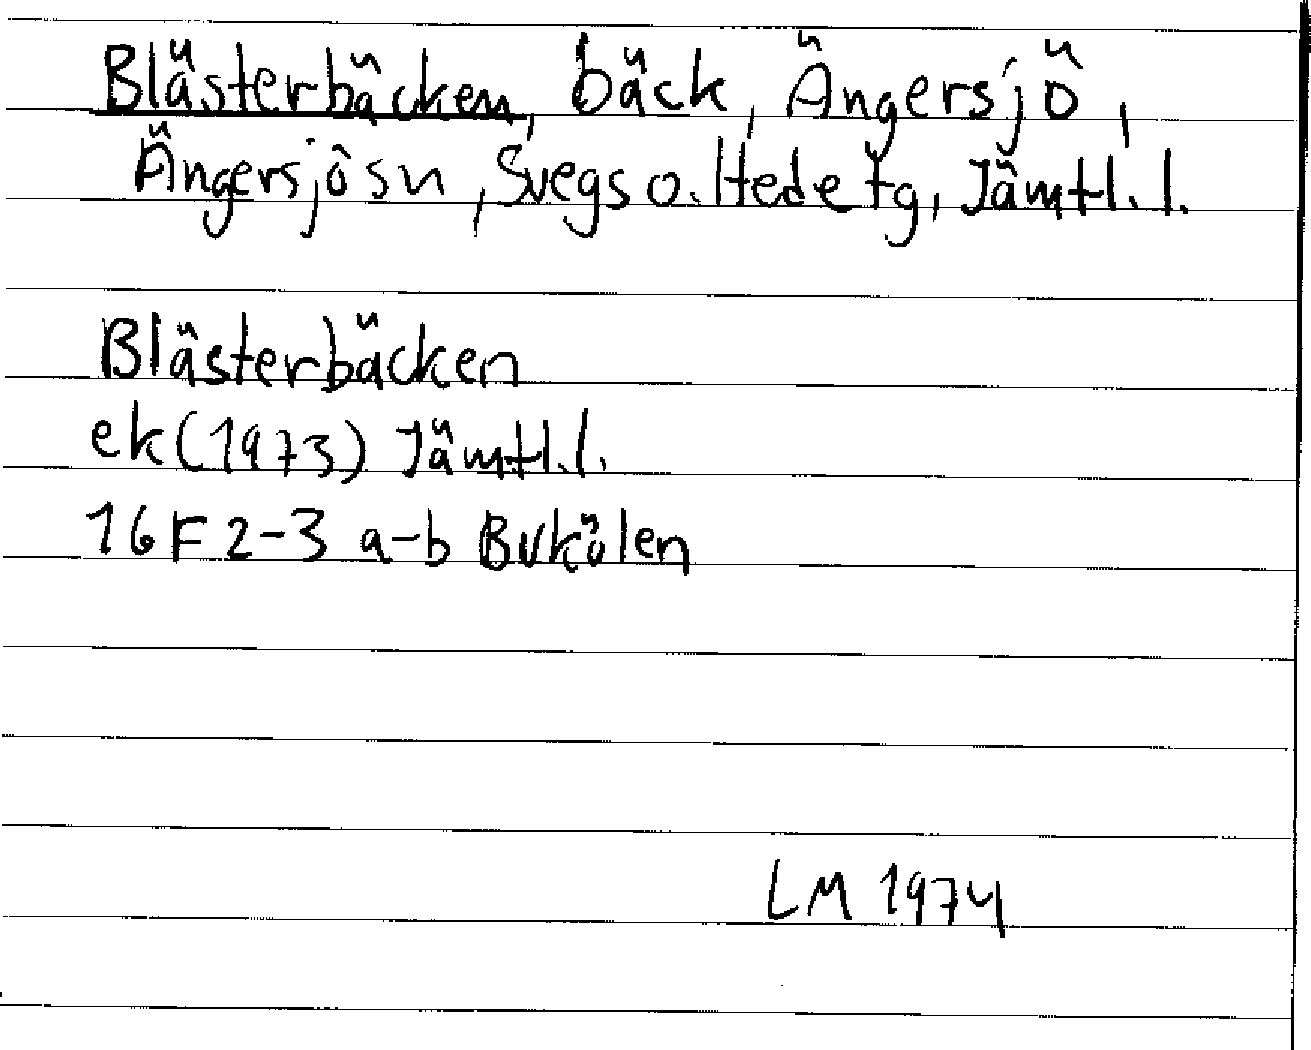 Blästerbäcken, bäck, Ängersjö,
Ängersjösn, Svegs o. Hede tg, Jämtl. l.
Blästerbäcken
ek (1973) Jämtl. l.
16F 2-3 a-b Bukölen
LM 1974